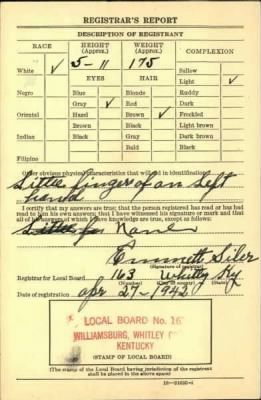 REGISTRAR'S REPORT
DESCRIPTION OF REGISTRANT
RACE HEIGHT (Approx.) WEIGHT (Approx.) COMPLEXION
White ✓ 5-11 175 Sallow
EYES HAIR Light ✓
Negro Blue Blonde Ruddy
Gray ✓ Red Dark
Oriental Hazel Brown ✓ Freckled
Brown Black Light brown
Indian Black Gray Dark brown
Bald Black
Filipino
Other obvious physical characteristics that will aid in identification
Little finger off on left
hand
I certify that my answers are true; that the person registered has read or has had
read to him his own answers; that I have witnessed his signature or mark and that
all of his answers of which I have knowledge are true, except as follows:
None
Emmett Siler
(Signature of registrar)
Registrar for Local Board 163 Whitley Ky
(Number) (City or county) (State)
Date of registration Apr 27-1942
LOCAL BOARD No. 16
WILLIAMSBURG, WHITLEY
KENTUCKY
(STAMP OF LOCAL BOARD)
(The stamp of the Local Board having jurisdiction of the registrant
shall be placed in the above space)